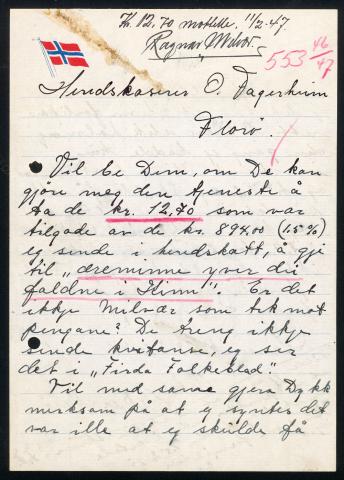 Kr. 12,70 mottatt. 11/2-47.
Ragnar Milvær.
553 46/47
Herredskasserer O. Fagerheim
Florø.
Vil be Dem, om De kan
gjøre meg den tjeneste å
ta de kr. 12,70 som var
tilgode av de kr. 894.00 (1.5%)
eg sende i herredskatt, å gje
til "æreminne yver dei
faldne i Kinn". Er det
ikkje Milvær som tek mot
pengane? De treng ikkje
sende kvitanse, eg ser
det i "Firda Folkeblad".
Vil med same gjera Dykk
merksam på at eg syntes det
var ille at eg skulde få